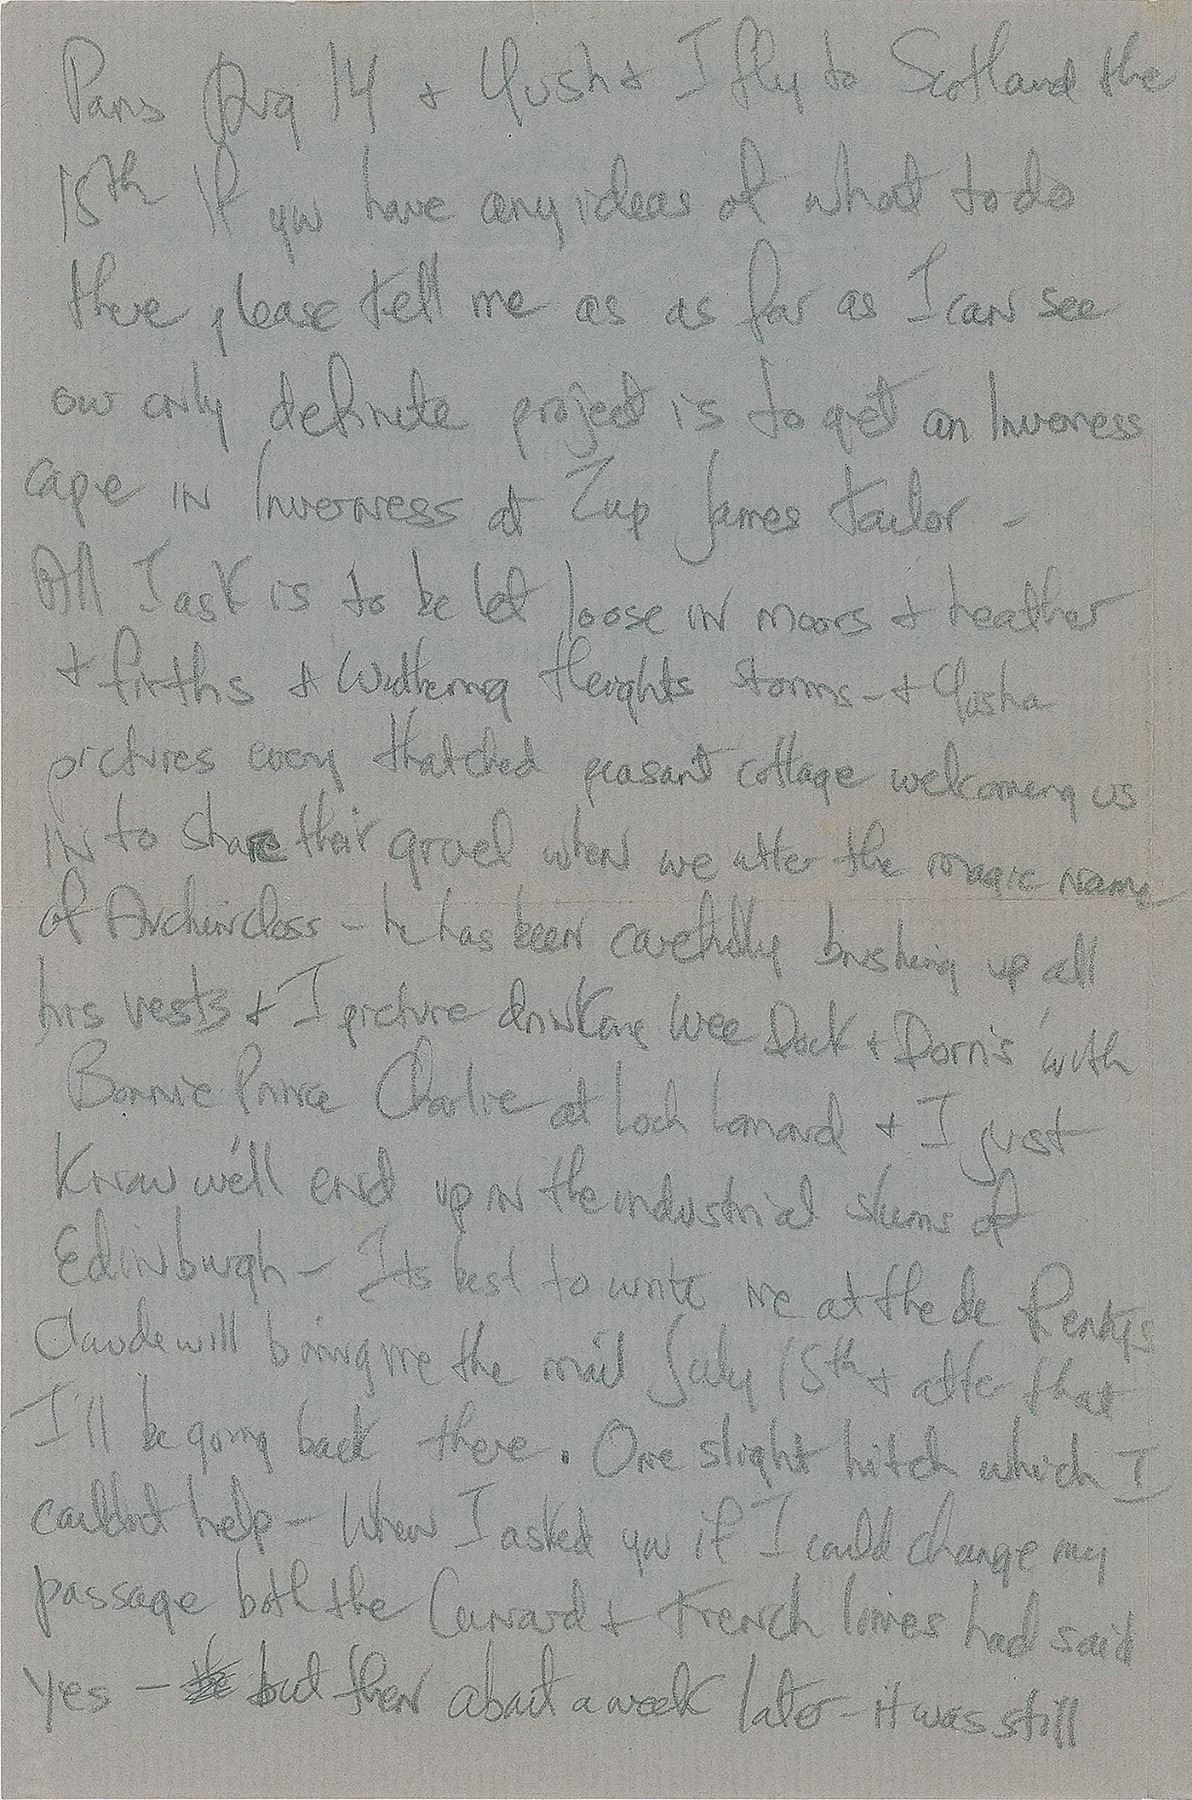 Paris Aug 14 + Yusha + I fly to Scotland the
15th If you have any ideas of what to do
there please tell me as as far as I can see
our only definite project is to get an Inverness
cape in Inverness at James Tailor -
All I ask is to be let loose in moors + heather
+ firths + Wuthering Heights storms - + Yusha
pictures every thatched peasant cottage welcoming us
in to share their gruel when we utter the magic name
of Auchincloss - he has been carefully brushing up all
his vests + I picture drinking Wee Dock + Dorris' with
Bonnie Prince Charlie at Loch Lomond + I just
know we'll end up in the industrial slums of
Edinburgh - Its best to write me at the de Rentys
Claude will bring me the mail July 15th + after that
I'll be going back there. One slight hitch which I
couldnt help - When I asked you if I could change my
passage both the Cunard + French lines had said
yes - but then about a week later - it was still